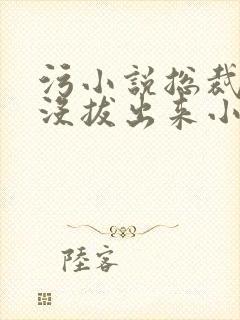 污小说总裁
没拔出来小
陸客